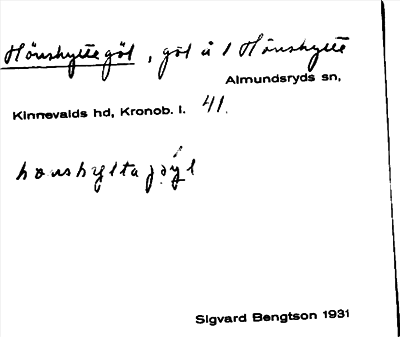 Hönshyltegöl, göl å 1 Hönshylte
Almundsryds sn,
Kinnevalds hd, Kronob. l. 41.
hønshylta
Sigvard Bengtson 1931